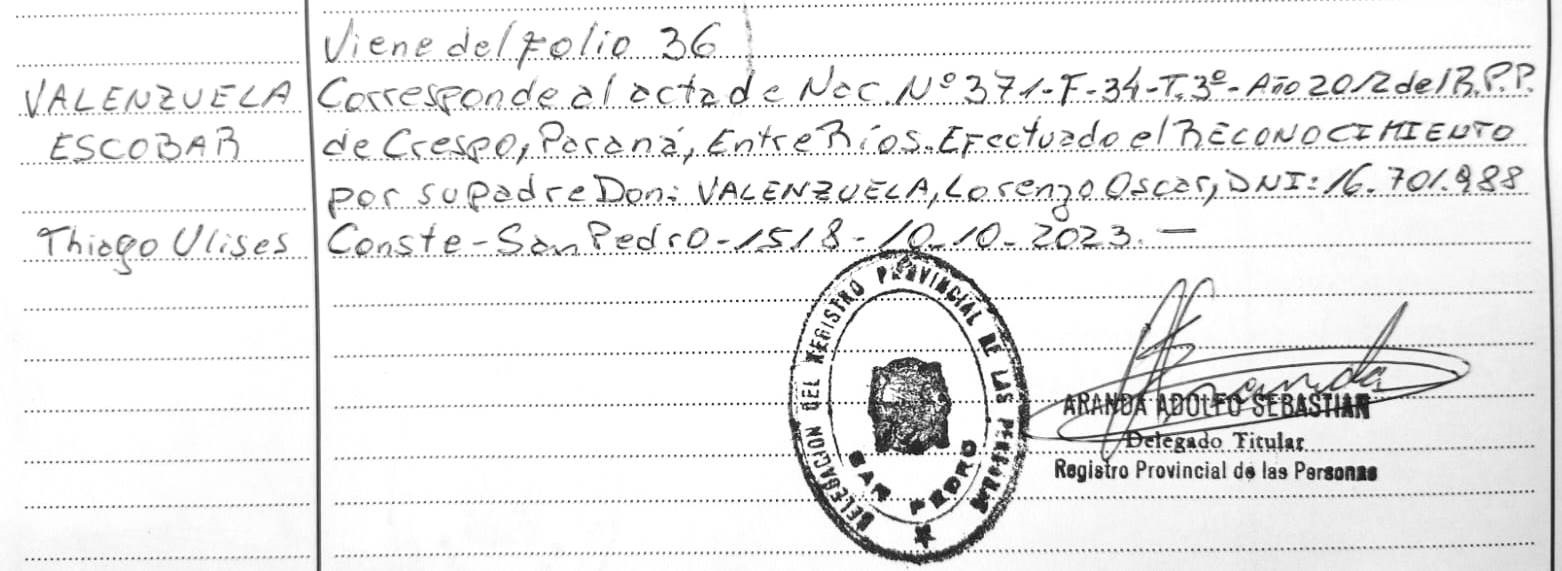 Viene del folio 36
VALENZUELA Corresponde al acta de Nac. Nº 371-F-34-T.3º-Año 2012 del R.P.P.
ESCOBAR de Crespo, Paraná, Entre Ríos. Efectuado el RECONOCIMIENTO
por su padre Don: VALENZUELA, Lorenzo Oscar, DNI: 16.701.988
Thiago Ulises Conste-San Pedro-1518-10-10-2023.—
DELEGACION DEL REGISTRO PROVINCIAL DE LAS PERSONAS
SAN PEDRO
Aranda
ARANDA ADOLFO SEBASTIAN
Delegado Titular
Registro Provincial de las Personas